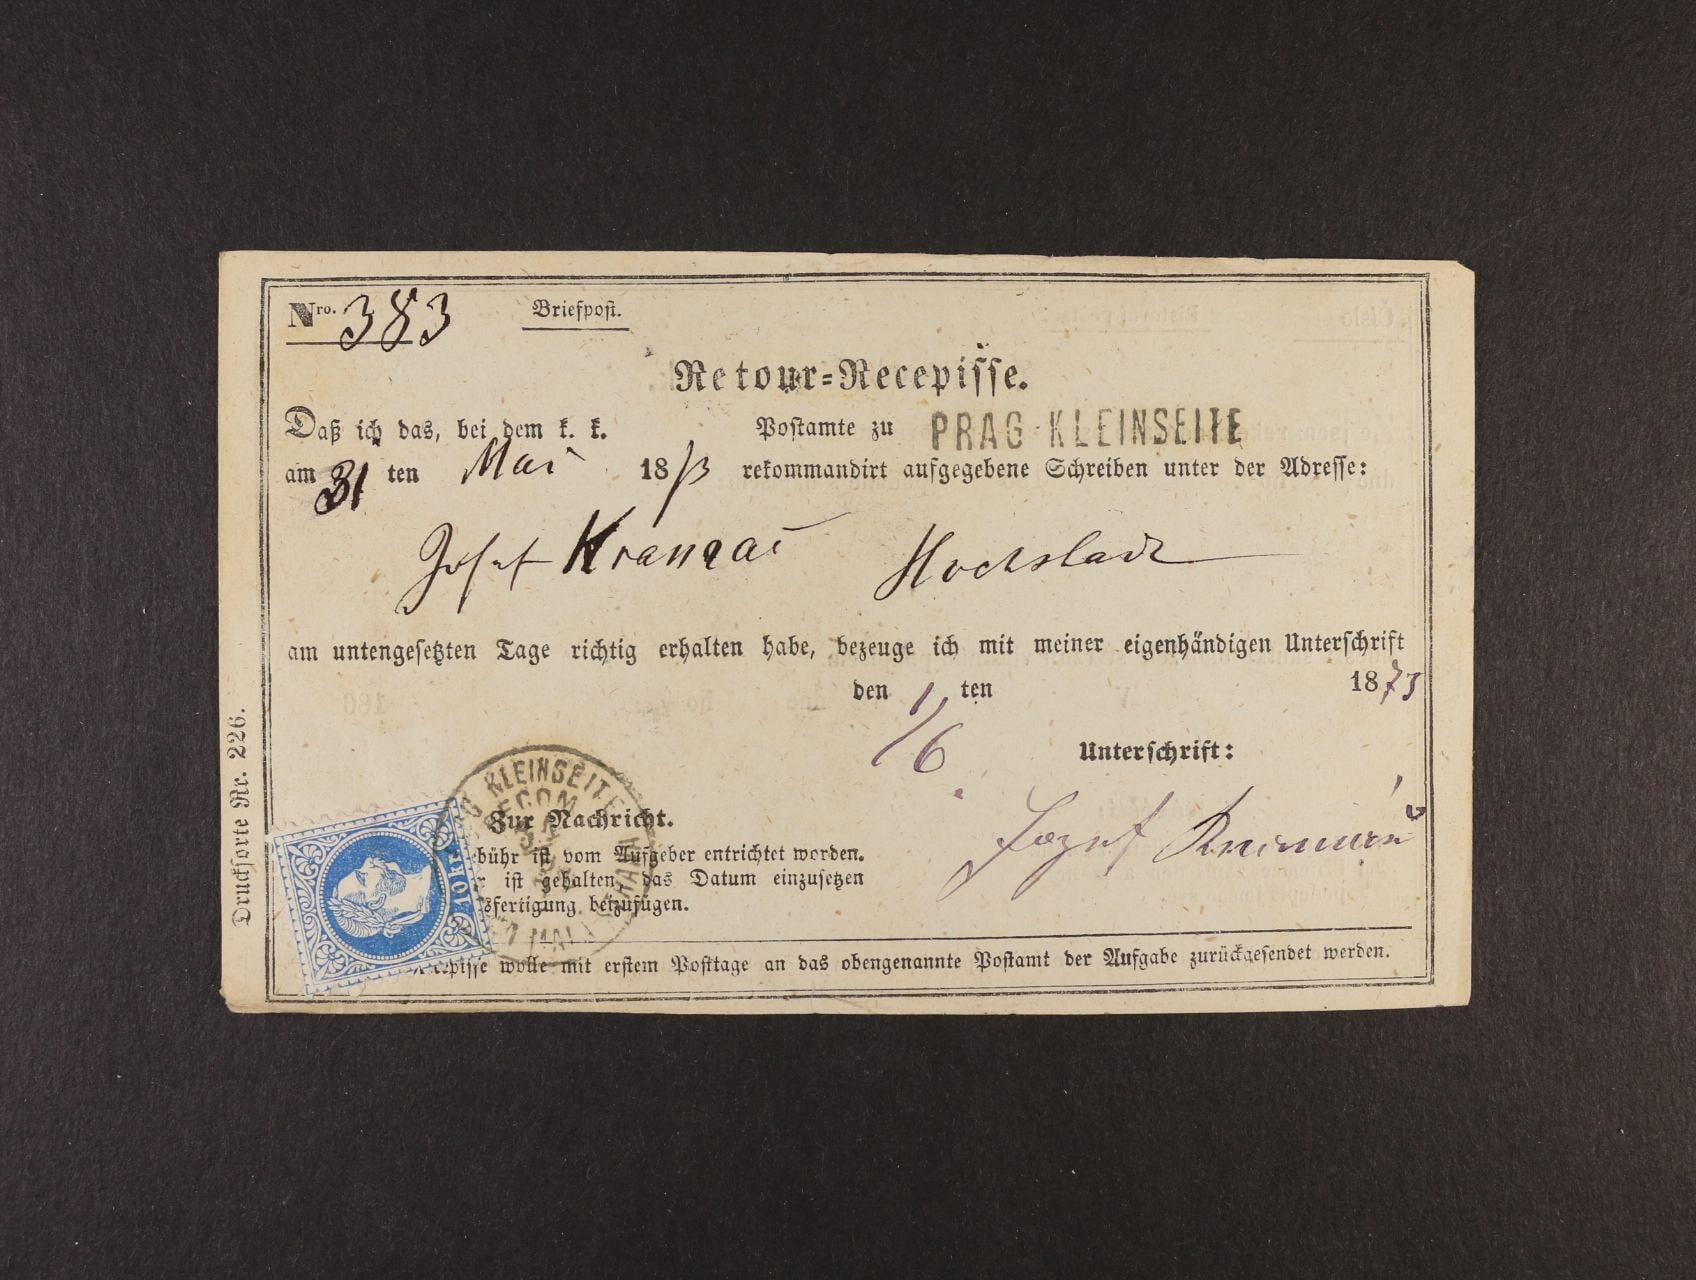 Nro. 383 Briefpost.
Retour-Recepisse.
Daß ich das, bei dem k. k. Postamte zu PRAG KLEINSEITE
am 31 ten Mai 1873 rekommandirt aufgegebene Schreiben unter der Adresse:
Josef
am untengesetzten Tage richtig erhalten habe, bezeuge ich mit meiner eigenhändigen Unterschrift
den 1/6 ten 1873
Unterschrift:
Jozef
KLEINSEITE
RECOM
MALA STRANA
Zur Nachricht.
bühr ist vom Aufgeber entrichtet worden.
r ist gehalten, das Datum einzusetzen
sfertigung beizufügen.
10 KR
Recepisse wolle mit erstem Posttage an das obengenannte Postamt der Aufgabe zurückgesendet werden.
Drucksorte Nr. 226.